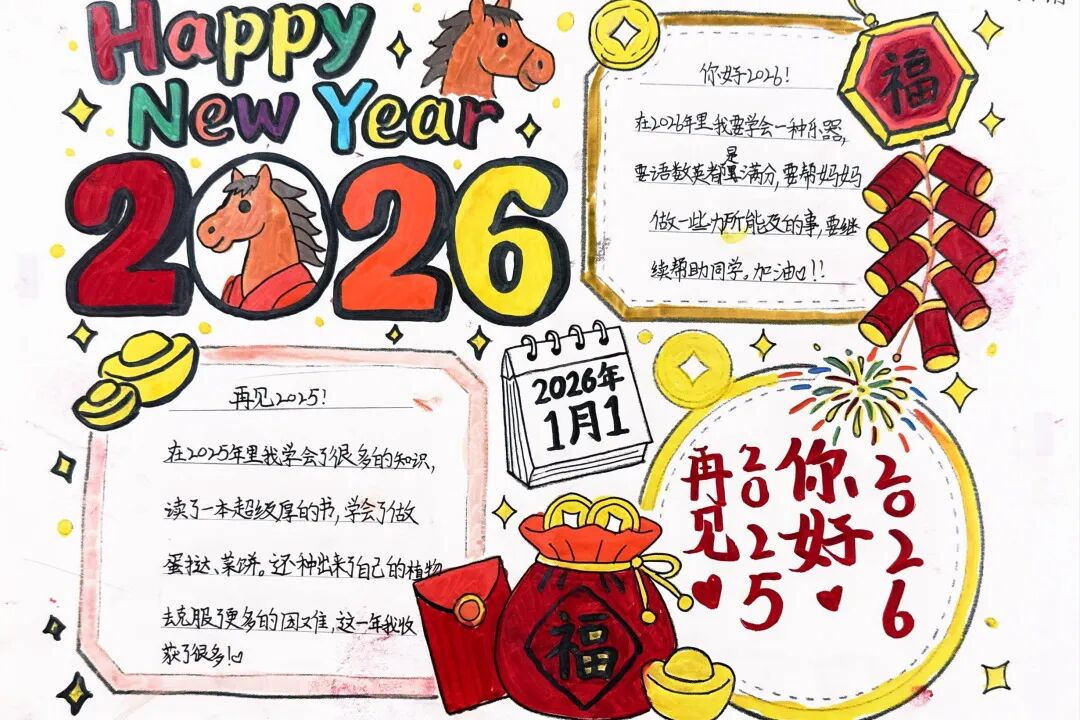 Happy
New Year
2026
福
你好2026!
在2026年里我要学会一种乐器,
要语数英都是满分,要帮妈妈
做一些力所能及的事,要继
续帮助同学。加油!!
再见2025!
在2025年里我学会了很多的知识,
读了一本超级厚的书,学会了做
蛋挞、菜饼。还种出来了自己的植物
去克服了更多的困难,这一年我收
获了很多!
2026年
1月1
福
再见
2025
你好
2026